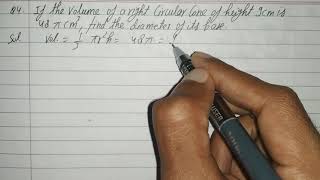 Q4. If the volume of a right Circular Cone of height 9cm is
48 π cm³, find the diameter of its base.
Sol Vol = 1/3 πr²h = 48π =